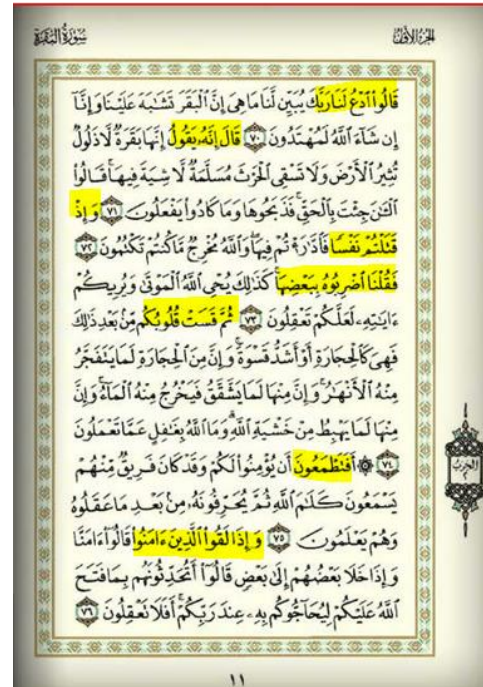 سُورَةُ البَقَرَةِ
الجُزْءُ الأَوَّلُ
قَالُوا۟ ٱدْعُ لَنَا رَبَّكَ يُبَيِّن لَّنَا مَا هِىَ إِنَّ ٱلْبَقَرَ تَشَٰبَهَ عَلَيْنَا وَإِنَّآ
إِن شَآءَ ٱللَّهُ لَمُهْتَدُونَ ٧٠ قَالَ إِنَّهُۥ يَقُولُ إِنَّهَا بَقَرَةٌ لَّا ذَلُولٌ
تُثِيرُ ٱلْأَرْضَ وَلَا تَسْقِى ٱلْحَرْثَ مُسَلَّمَةٌ لَّا شِيَةَ فِيهَا قَالُوا۟
ٱلْـَٰٔنَ جِئْتَ بِٱلْحَقِّ فَذَبَحُوهَا وَمَا كَادُوا۟ يَفْعَلُونَ ٧١ وَإِذْ
قَتَلْتُمْ نَفْسًا فَٱدَّٰرَْٰٔتُمْ فِيهَا وَٱللَّهُ مُخْرِجٌ مَّا كُنتُمْ تَكْتُمُونَ ٧٢
فَقُلْنَا ٱضْرِبُوهُ بِبَعْضِهَا كَذَٰلِكَ يُحْىِ ٱللَّهُ ٱلْمَوْتَىٰ وَيُرِيكُمْ
ءَايَٰتِهِۦ لَعَلَّكُمْ تَعْقِلُونَ ٧٣ ثُمَّ قَسَتْ قُلُوبُكُم مِّنۢ بَعْدِ ذَٰلِكَ
فَهِىَ كَٱلْحِجَارَةِ أَوْ أَشَدُّ قَسْوَةً وَإِنَّ مِنَ ٱلْحِجَارَةِ لَمَا يَتَفَجَّرُ
مِنْهُ ٱلْأَنْهَٰرُ وَإِنَّ مِنْهَا لَمَا يَشَّقَّقُ فَيَخْرُجُ مِنْهُ ٱلْمَآءُ وَإِنَّ
مِنْهَا لَمَا يَهْبِطُ مِنْ خَشْيَةِ ٱللَّهِ وَمَا ٱللَّهُ بِغَٰفِلٍ عَمَّا تَعْمَلُونَ
٧٤ ۞ أَفَتَطْمَعُونَ أَن يُؤْمِنُوا۟ لَكُمْ وَقَدْ كَانَ فَرِيقٌ مِّنْهُمْ
يَسْمَعُونَ كَلَٰمَ ٱللَّهِ ثُمَّ يُحَرِّفُونَهُۥ مِنۢ بَعْدِ مَا عَقَلُوهُ
وَهُمْ يَعْلَمُونَ ٧٥ وَإِذَا لَقُوا۟ ٱلَّذِينَ ءَامَنُوا۟ قَالُوٓا۟ ءَامَنَّا
وَإِذَا خَلَا بَعْضُهُمْ إِلَىٰ بَعْضٍ قَالُوٓا۟ أَتُحَدِّثُونَهُم بِمَا فَتَحَ
ٱللَّهُ عَلَيْكُمْ لِيُحَآجُّوكُم بِهِۦ عِندَ رَبِّكُمْ أَفَلَا تَعْقِلُونَ ٧٦
الحزب
٢
١١